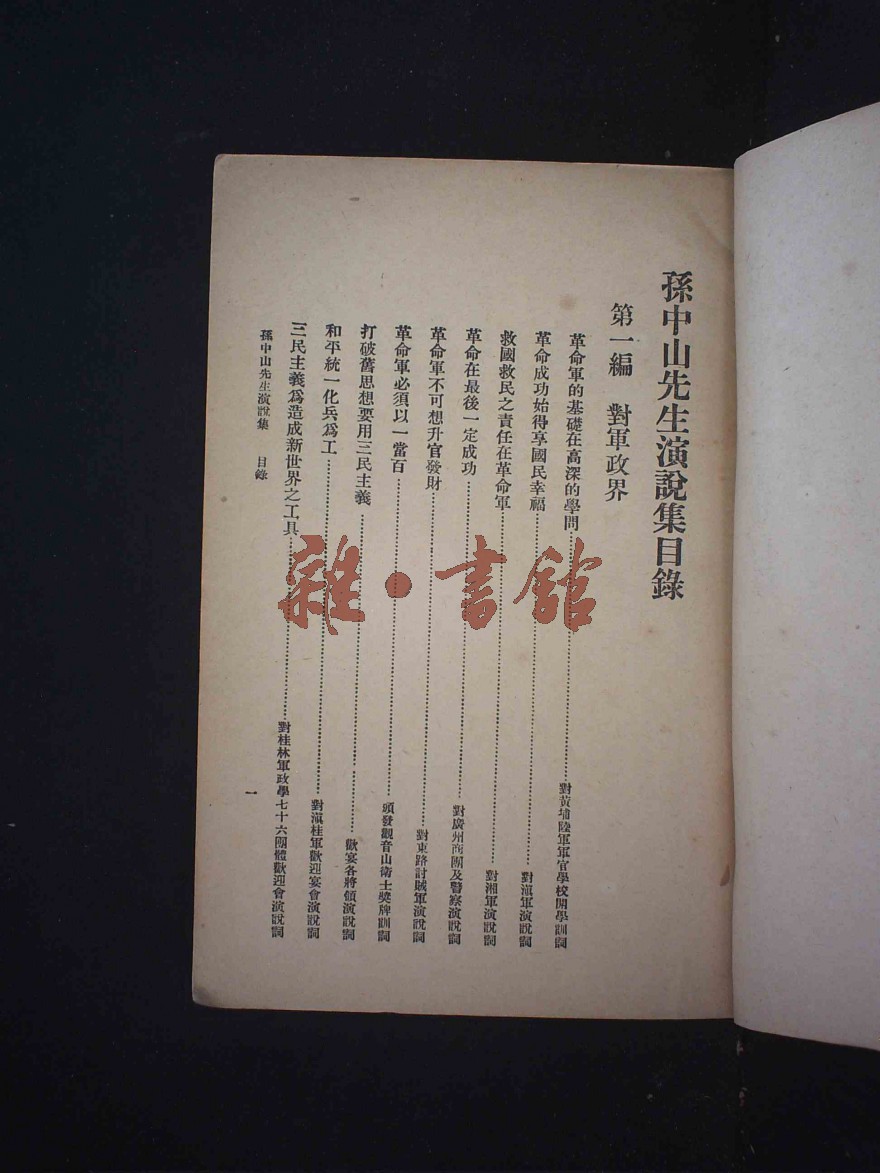 孫中山先生演說集目錄
第一編 對軍政界
革命軍的基礎在高深的學問……對黃埔陸軍軍官學校開學訓詞
革命成功始得享國民幸福……對滇軍演說詞
救國救民之責任在革命軍……對湘軍演說詞
革命在最後一定成功……對廣州商團及警察演說詞
革命軍不可想升官發財……對東路討賊軍演說詞
革命軍必須以一當百……頒發觀音山衛士獎牌訓詞
打破舊思想要用三民主義……歡宴各將領演說詞
和平統一化兵為工……對滇桂軍歡迎宴會演說詞
三民主義爲造成新世界之工具……對桂林軍政學七十六團體歡迎會演說詞
孫中山先生演說集 目錄
一
雜·書館